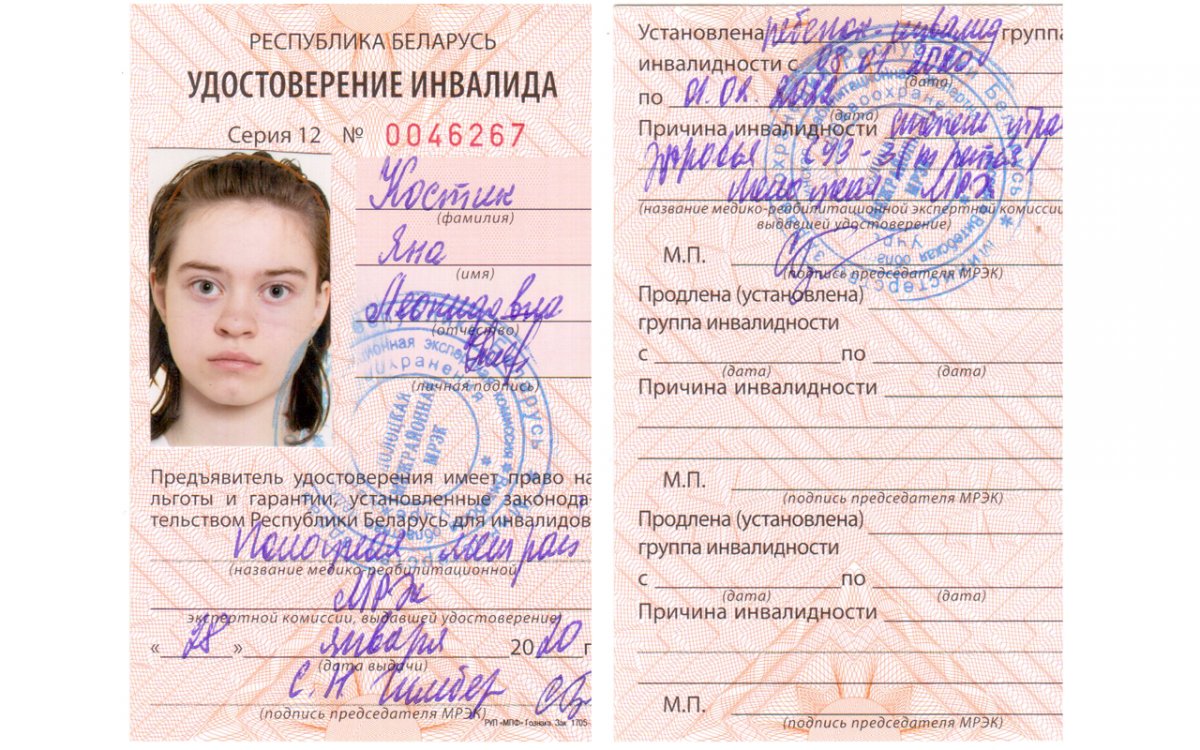 РЕСПУБЛИКА БЕЛАРУСЬ
УДОСТОВЕРЕНИЕ ИНВАЛИДА
Серия 12 № 0046267
Костик
(фамилия)
Яна
(имя)
Леонидовна
(отчество)
(личная подпись)
ПОЛОЦКАЯ
МЕЖРАЙОННАЯ
МРЭК
Предъявитель удостоверения имеет право на
льготы и гарантии, установленные законода-
тельством Республики Беларусь для инвалидов
Полоцкая межрай
(название медико-реабилитационной
МРЭК
экспертной комиссии, выдавшей удостоверение)
«28» января 2020 г
(дата выдачи)
С. Н
(подпись председателя МРЭК)
РУП «МПФ» Гознака. Зак. 1705
Установлена ребенок-инвалид группа
инвалидности с 2020
(дата)
по
(дата)
Причина инвалидности степень утра
здоровья
Полоцкая МРЭК
(название медико-реабилитационной экспертной комиссии
выдавшей удостоверение)
М.П.
(подпись председателя МРЭК)
Продлена (установлена)
группа инвалидности
с по
(дата) (дата)
Причина инвалидности
М.П.
(подпись председателя МРЭК)
Продлена (установлена)
группа инвалидности
с по
(дата) (дата)
Причина инвалидности
М.П.
(подпись председателя МРЭК)